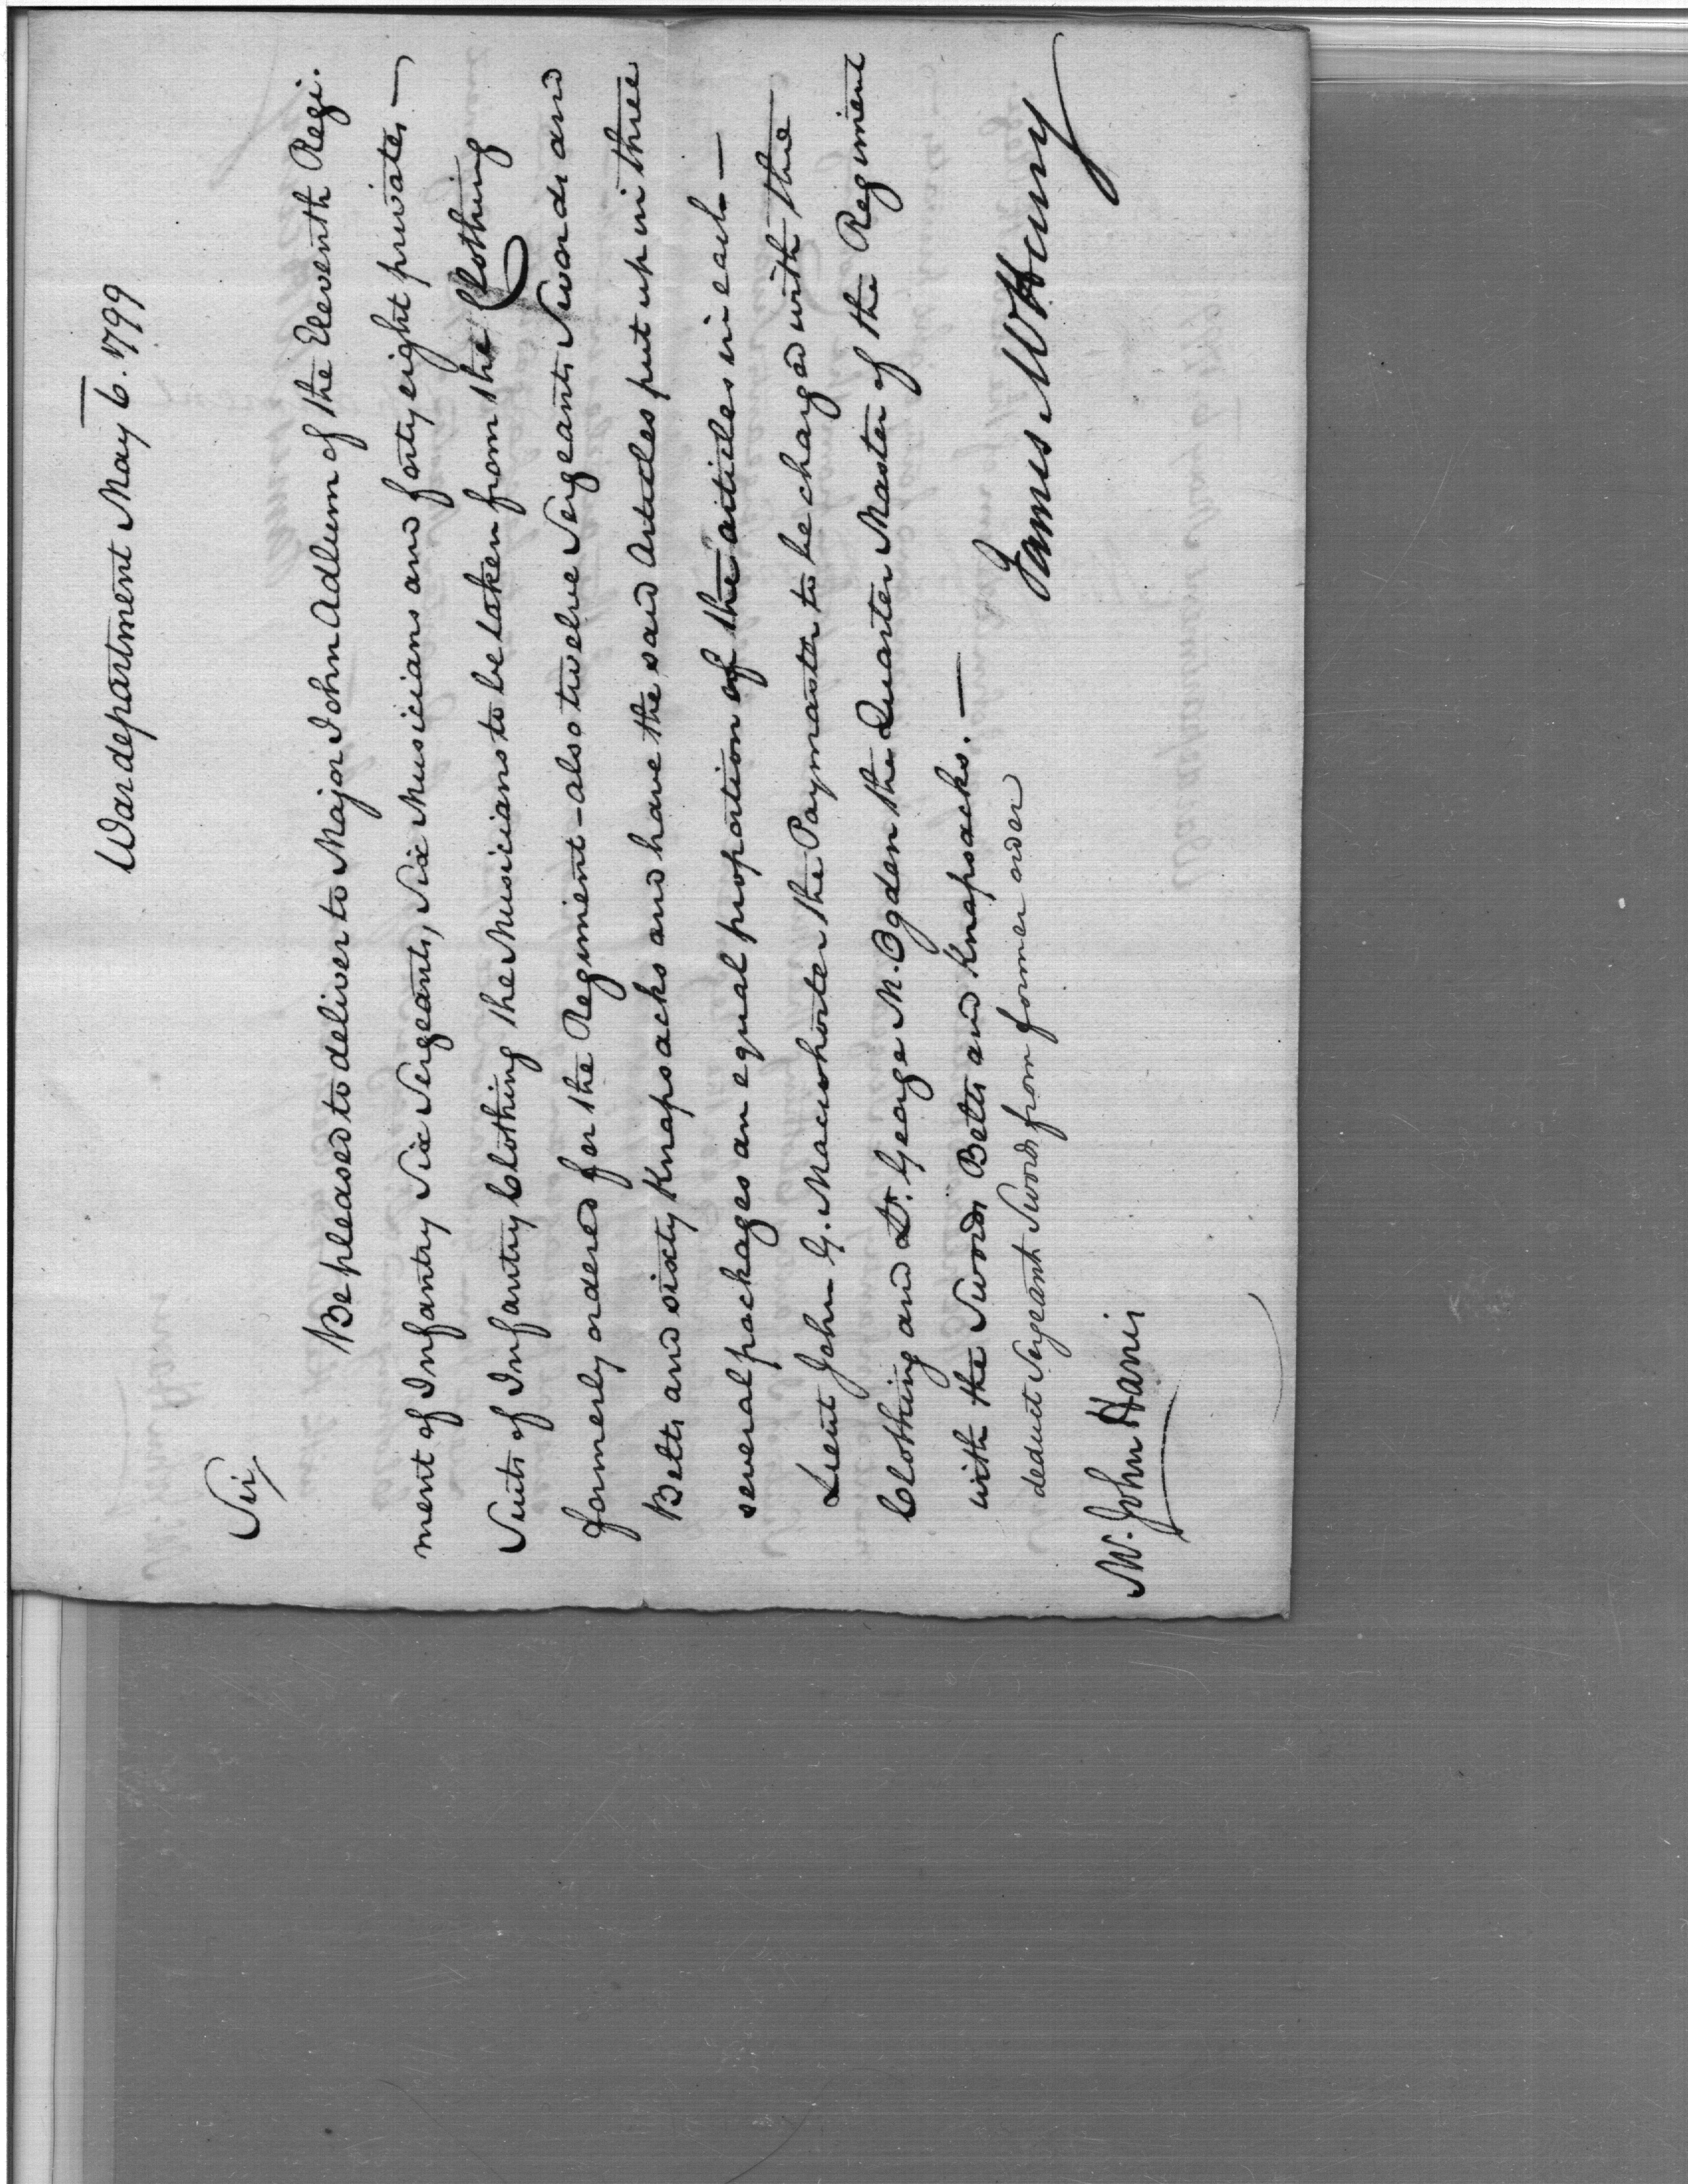 War department May 6. 1799
Sir,
Be pleased to deliver to Major John Adlum of the Eleventh Regi.
ment of Infantry Six Sergeants, Six Musicians and forty eight privates —
Suits of Infantry Clothing the Musicians to be taken from the Clothing
formerly ordered for the Regiment – also twelve Sergeants Swords and
Belts and sixty Knapsacks and have the said Articles put up in three
several packages an equal proportion of the articles in each —
Lieut John G. Macwhorter the Paymaster to be charged with the
Clothing and Dr. George M. Ogden the Quarter Master of the Regiment
with the Swords Belts and Knapsacks. —
deduct Sergeants Swords from former order
James McHenry
Mr. John Harris